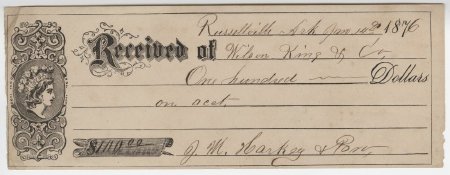 Russellville Ark Jan 1876
Received of Wilson King & Co
One hundred Dollars
on acct
$100.00 J. M. Harkey & Son